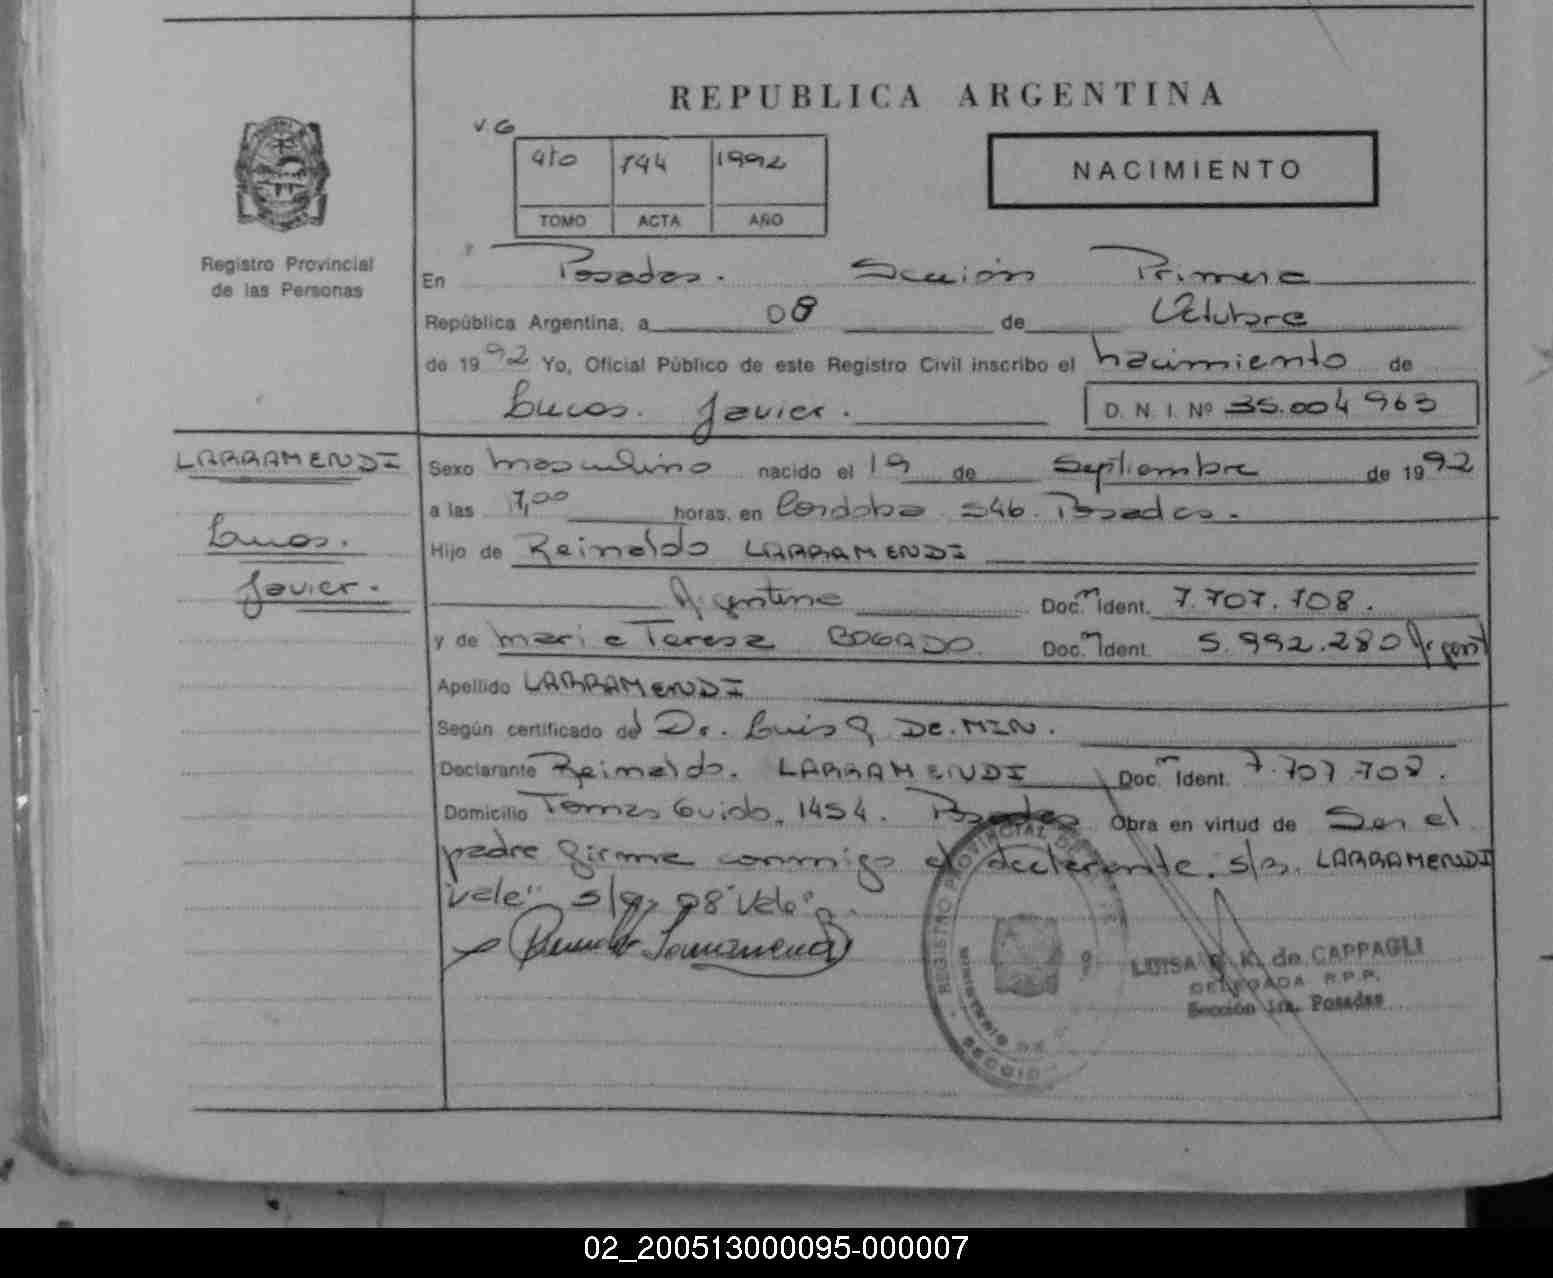 REPUBLICA ARGENTINA
V.G
4to 144 1992
TOMO ACTA AÑO
NACIMIENTO
Registro Provincial
de las Personas
En Posadas. Sección Primera
República Argentina, a 08 de Octubre
de 1992 Yo, Oficial Público de este Registro Civil inscribo el nacimiento de
Lucas. Javier. D. N. I. Nº 35.004963
LARRAMENDI
Lucas.
Javier.
Sexo masculino nacido el 19 de Septiembre de 1992
a las 7,00 horas, en Cordoba 546. Posadas.
Hijo de Reinaldo LARRAMENDI
Argentino Doc. Ident. 7.707.708.
y de Maria Teresa BOGADO. Doc. Ident. 5.992.280 Argent
Apellido LARRAMENDI
Según certificado del Dr. Luis Q DE.MIN.
Declarante Reinaldo. LARRAMENDI Doc. Ident. 7.707.708.
Domicilio Tomas Guido. 1454. Posadas Obra en virtud de Ser el
padre firma conmigo el declarante. s/r. LARRAMENDI
"Vale" s/r, 08 "Vale"
REGISTRO PROVINCIAL DE
LUISA K. de CAPPAGLI
DELEGADA R.P.P.
Sección 1ra. Posadas
02_200513000095-000007